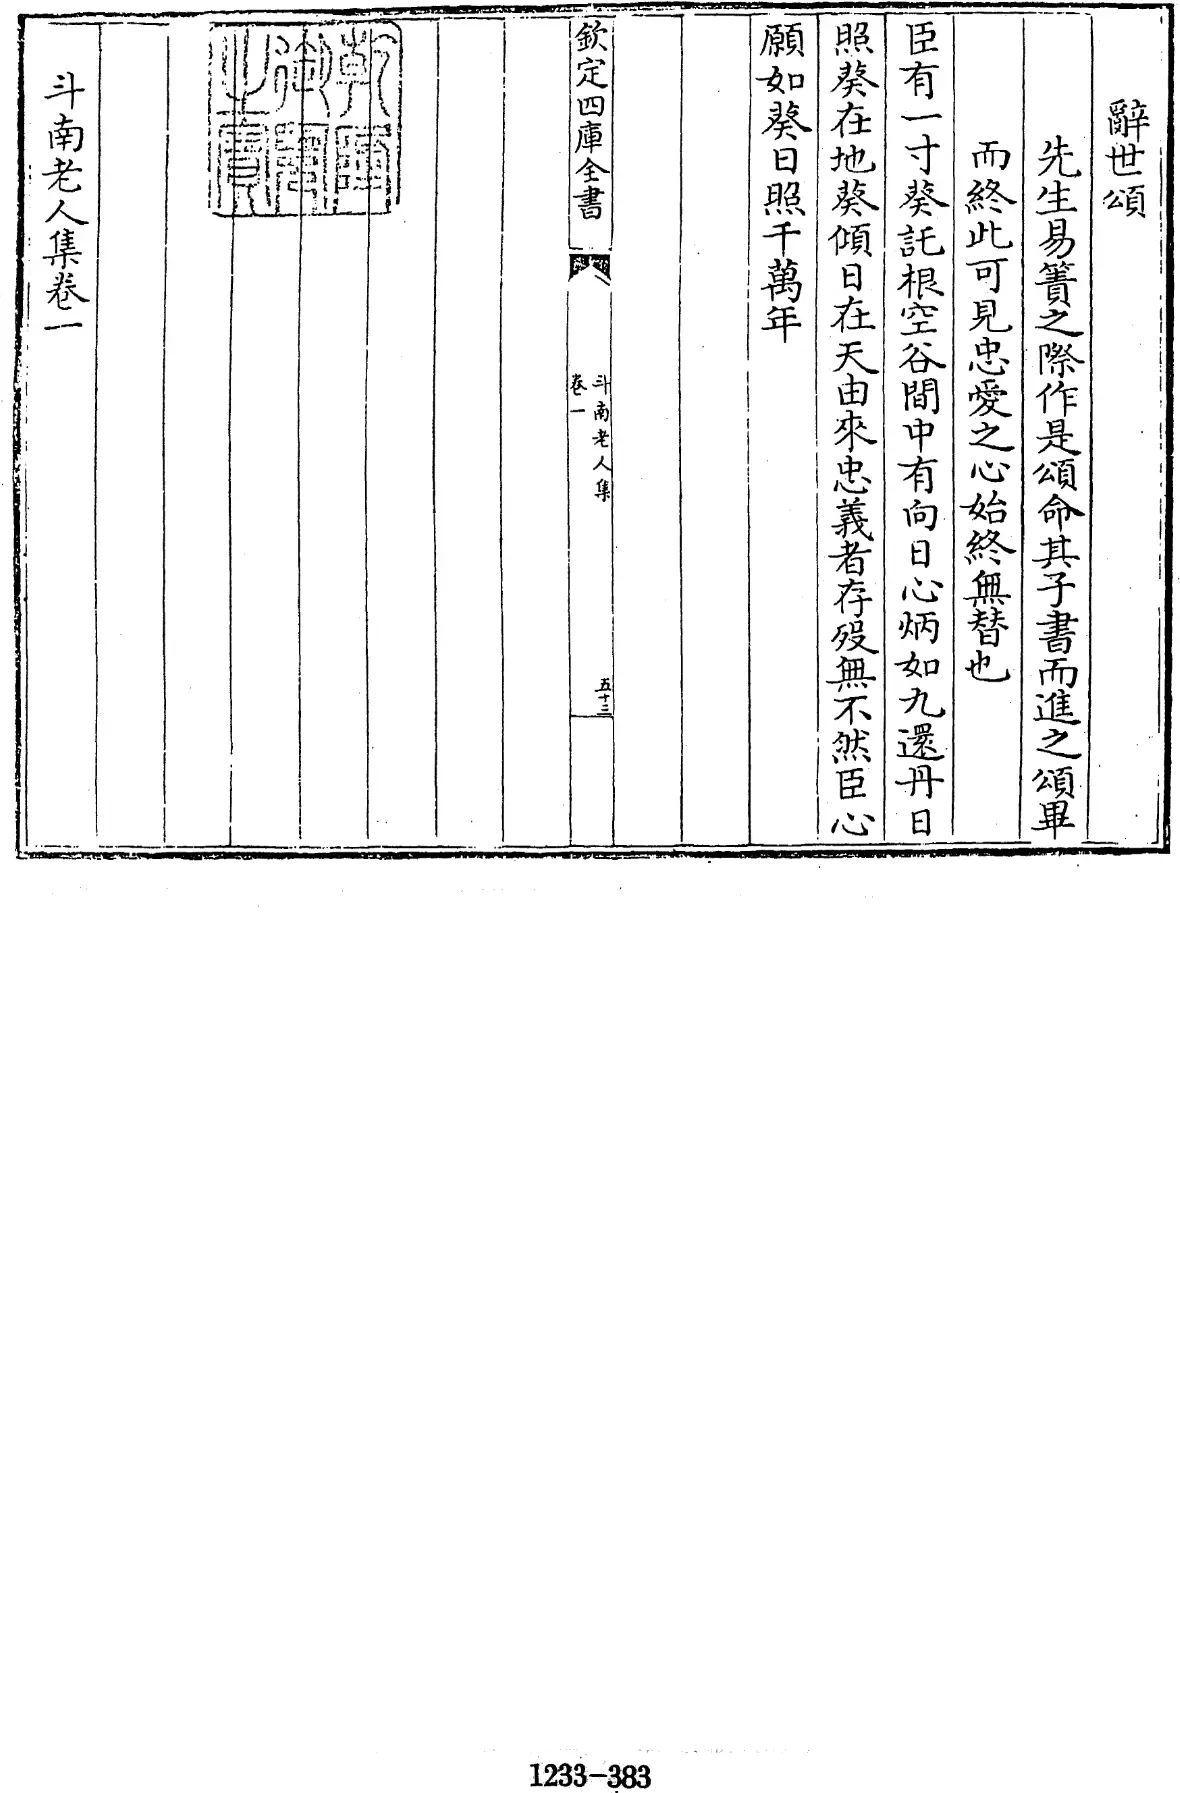 辭世頌
先生易簀之際作是頌命其子書而進之頌畢
而終此可見忠愛之心始終無替也
臣有一寸葵託根空谷間中有向日心炳如九還丹日
照葵在地葵傾日在天由來忠義者存歿無不然臣心
願如葵日照千萬年
欽定四庫全書
斗南老人集
卷一
五十三
乾隆
御覽
之寶
斗南老人集卷一
1233-383